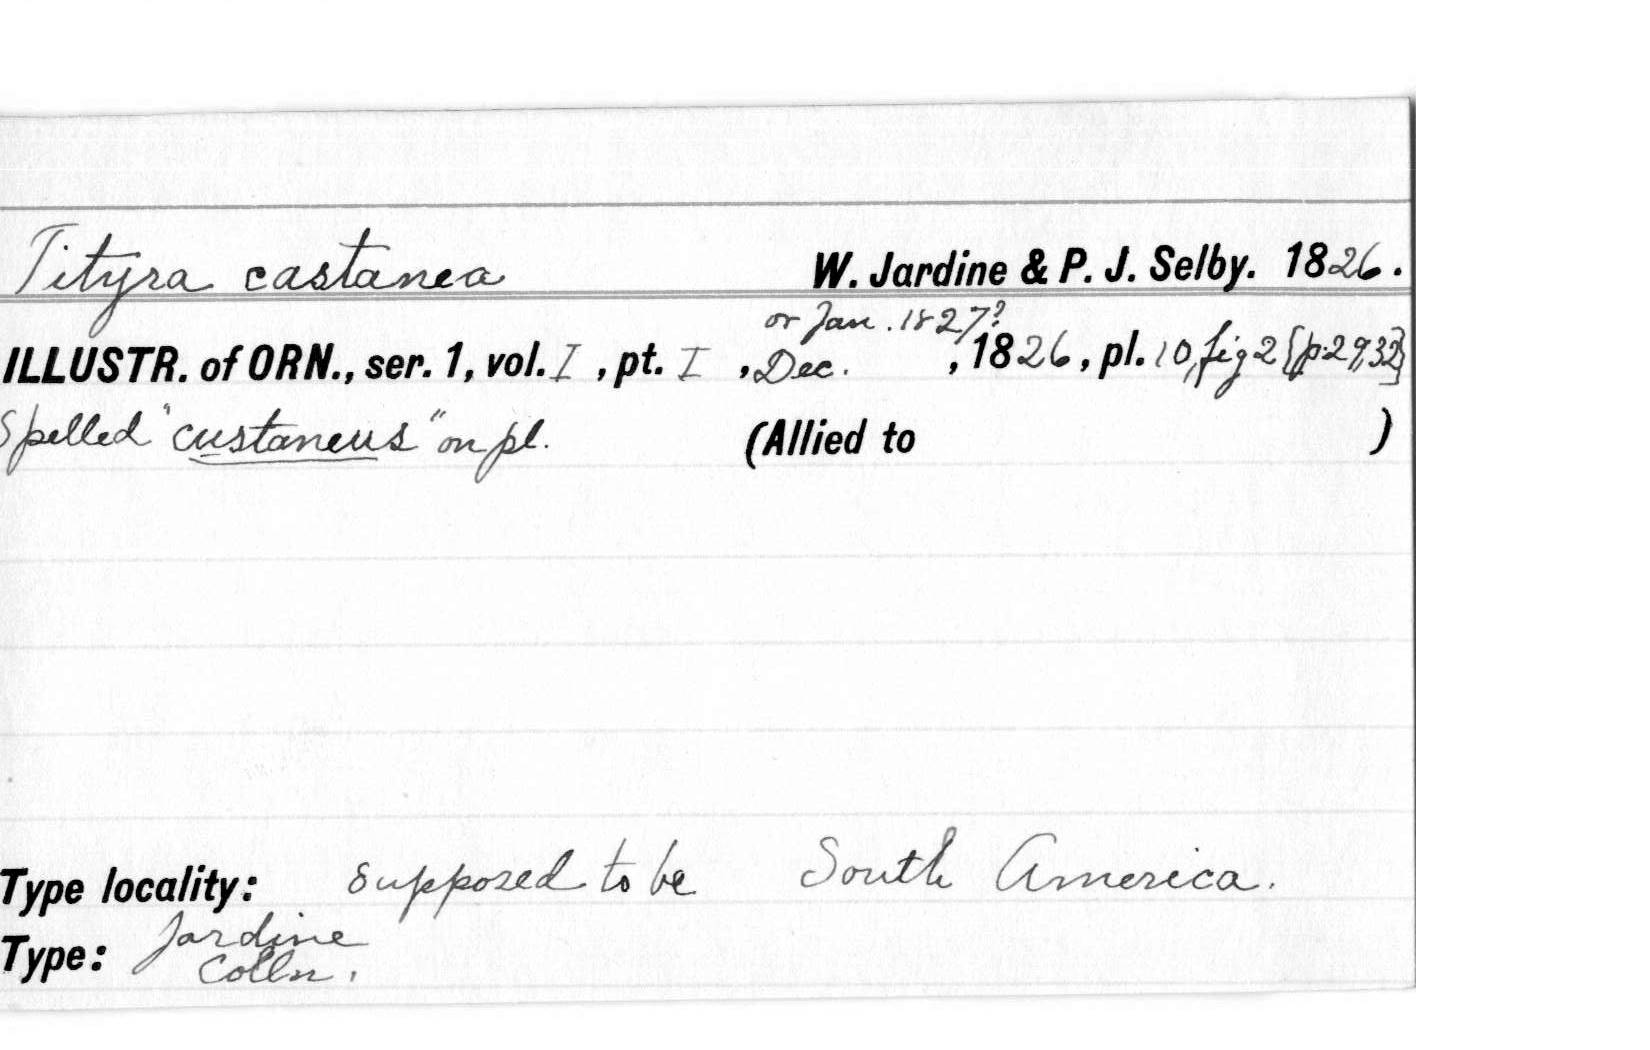 Tityra castanea W. Jardine & P. J. Selby. 1826.
or Jan. 1827?
ILLUSTR. of ORN., ser. 1, vol. I , pt. I , Dec. , 1826 , pl. 10, fig 2 [p. 29, 32]
Spelled "custaneus" on pl. (Allied to )
Type locality: supposed to be South America.
Type: Jardine
Colln.